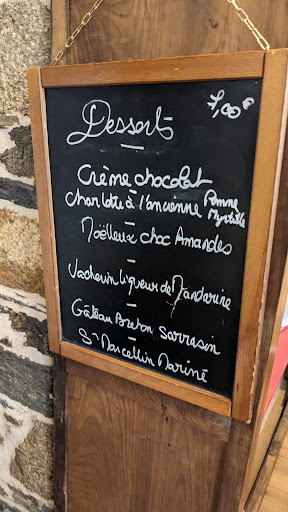 Desserts
7,00 €
Crème chocolat
Charlotte à l'ancienne Pomme
Myrtille
Moëlleux choc Amandes
Vacherin Liqueur de Mandarine
Gâteau Breton Sarrasin
St Marcellin Mariné